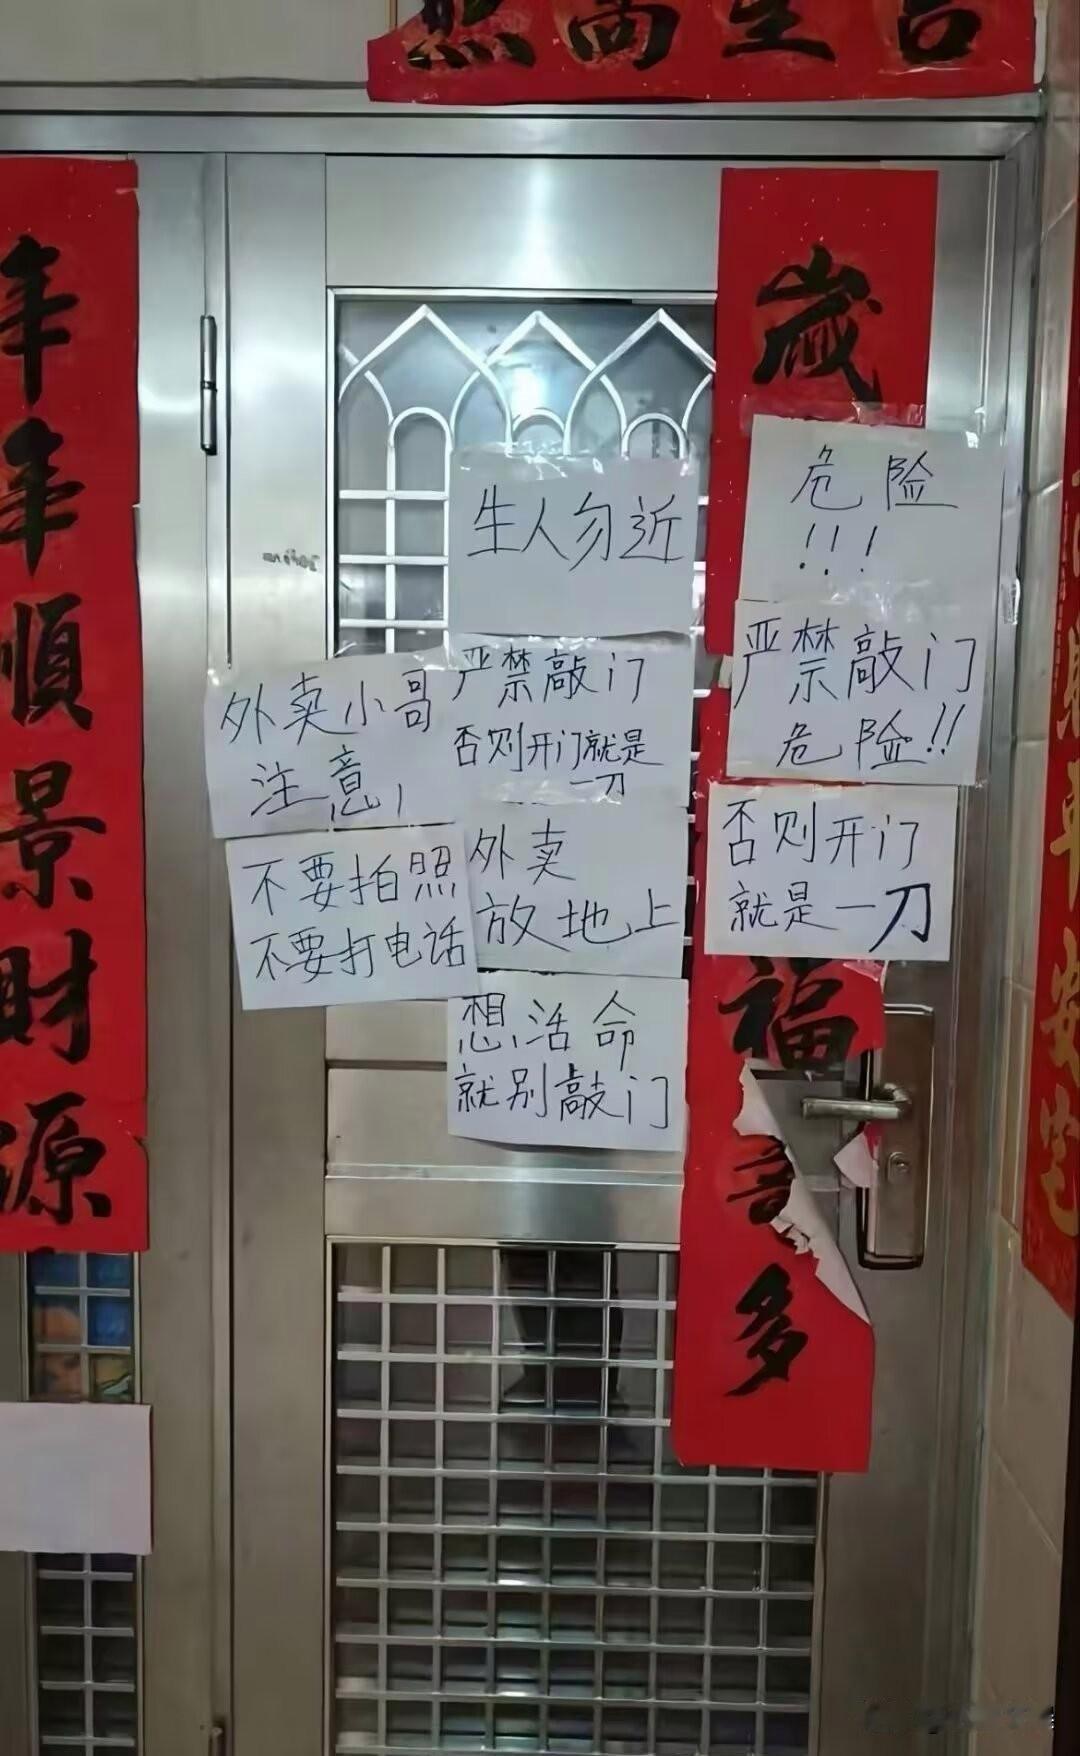 照高星吉
年年順景財源
歲
福
多
生人勿近
危险
!!!
严禁敲门
危险!!
否则开门
就是一刀
外卖小哥
注意!
严禁敲门
否则开门就是
一刀
不要拍照
不要打电话
外卖
放地上
想活命
就别敲门
平安